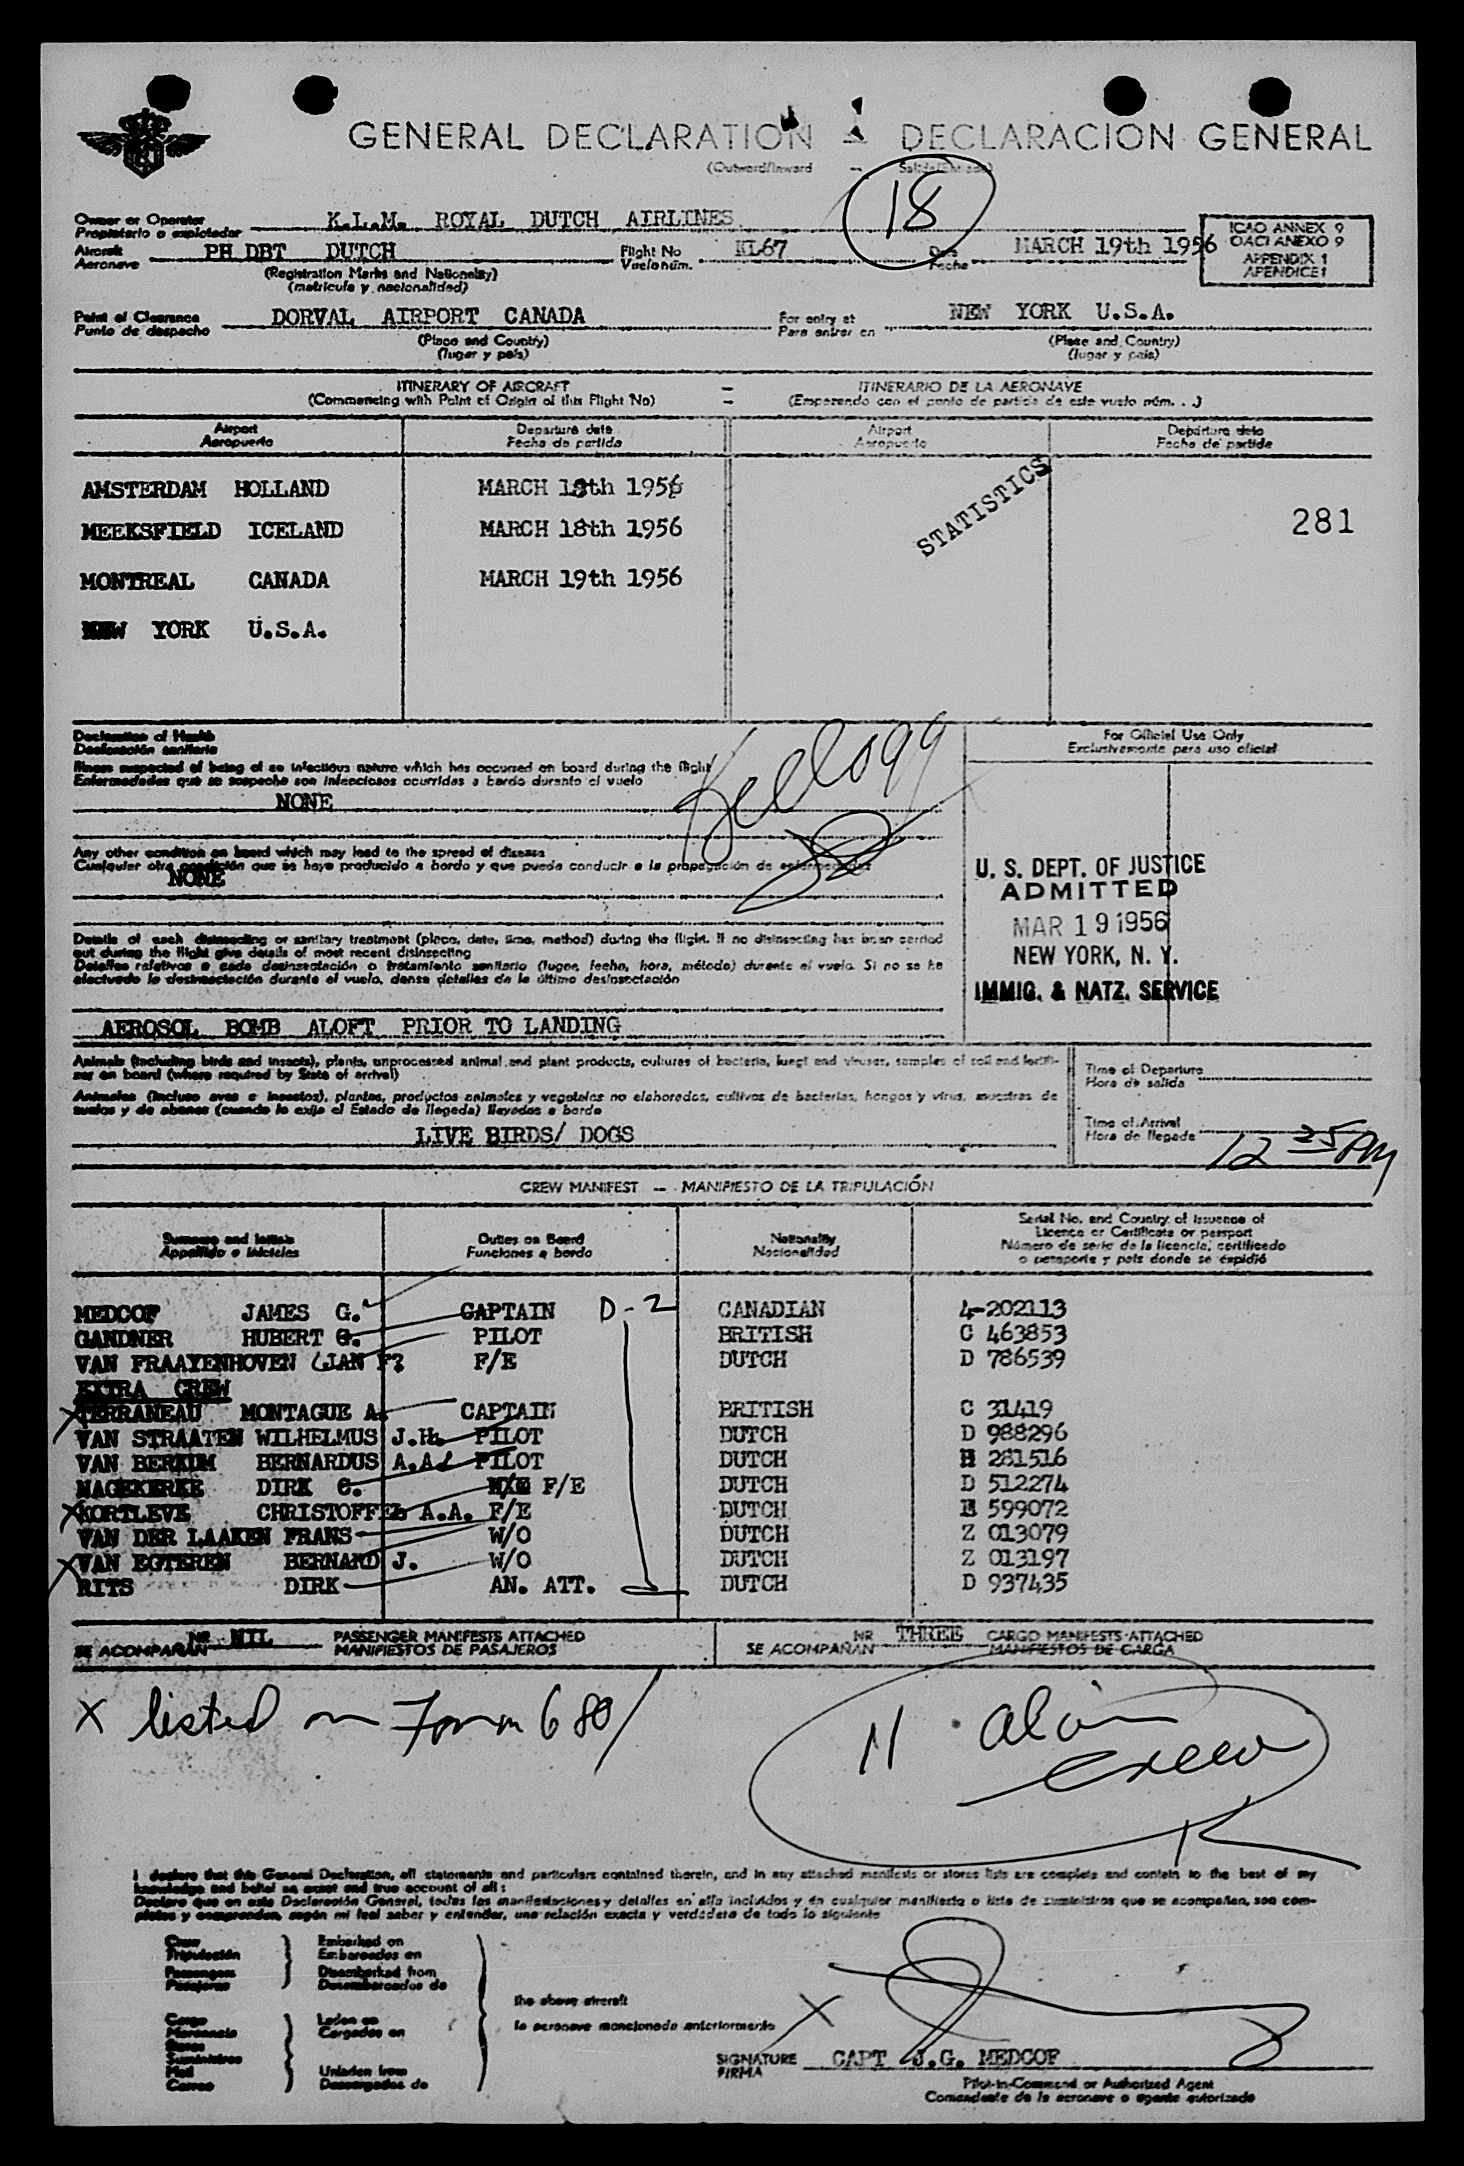 GENERAL DECLARATION - DECLARACION GENERAL
(Outward/Inward - Salida/Entrada)
18
Owner or Operator K.L.M. ROYAL DUTCH AIRLINES
Propietario o explotador
ICAO ANNEX 9
OACI ANEXO 9
APPENDIX 1
APENDICE 1
Aircraft PH DBT DUTCH Flight No KL67 Date MARCH 19th 1956
Aeronave Vuelo núm. Fecha
(Registration Marks and Nationality)
(matrícula y nacionalidad)
Point of Clearance DORVAL AIRPORT CANADA For entry at NEW YORK U.S.A.
Punto de despacho Para entrar en
(Place and Country) (Place and Country)
(lugar y país) (lugar y país)
ITINERARY OF AIRCRAFT - ITINERARIO DE LA AERONAVE
(Commencing with Point of Origin of this Flight No) - (Empezando con el punto de partida de este vuelo núm. . .)
Airport Departure date Airport Departure date
Aeropuerto Fecha de partida Aeropuerto Fecha de partida
AMSTERDAM HOLLAND MARCH 18th 1956
STATISTICS
281
MEEKSFIELD ICELAND MARCH 18th 1956
MONTREAL CANADA MARCH 19th 1956
NEW YORK U.S.A.
Declaration of Health
Declaración sanitaria
For Official Use Only
Exclusivamente para uso oficial
Illness suspected of being of an infectious nature which has occurred on board during the flight
Enfermedades que se sospecha son infecciosas ocurridas a bordo durante el vuelo
NONE
Kellogg
Any other condition on board which may lead to the spread of disease
Cualquier otra condición que se haya producido a bordo y que puede conducir a la propagación de enfermedades
NONE
U. S. DEPT. OF JUSTICE
ADMITTED
MAR 19 1956
NEW YORK, N. Y.
IMMIG. & NATZ. SERVICE
Details of each disinsecting or sanitary treatment (place, date, time, method) during the flight. If no disinsecting has been carried
out during the flight give details of most recent disinsecting
Detalles relativos a cada desinsectación o tratamiento sanitario (lugar, fecha, hora, método) durante el vuelo. Si no se ha
efectuado la desinsectación durante el vuelo, dense detalles de la última desinsectación
AEROSOL BOMB ALOFT PRIOR TO LANDING
Animals (including birds and insects), plants, unprocessed animal and plant products, cultures of bacteria, fungi and viruses, samples of soil and fertili-
zer on board (where required by State of arrival)
Animales (incluso aves e insectos), plantas, productos animales y vegetales no elaborados, cultivos de bacterias, hongos y virus, muestras de
suelos y de abonos (cuando lo exija el Estado de llegada) llevados a bordo
LIVE BIRDS/ DOGS
Time of Departure
Hora de salida
Time of Arrival 12 25 PM
Hora de llegada
CREW MANIFEST -- MANIFIESTO DE LA TRIPULACIÓN
Surname and initials Duties on Board Nationality Serial No. and Country of issuance of
Licence or Certificate or passport
Apellido e iniciales Funciones a bordo Nacionalidad Número de serie de la licencia, certificado
o pasaporte y país donde se expidió
MEDCOF JAMES G. CAPTAIN D-2 CANADIAN 4-202113
GANDNER HUBERT G. PILOT BRITISH C 463853
VAN FRAAYENHOVEN (JAN F? F/E DUTCH D 786539
EXTRA CREW
X TERRANEAU MONTAGUE A. CAPTAIN BRITISH C 31419
VAN STRAATEN WILHELMUS J.H. PILOT DUTCH D 988296
VAN BERKUM BERNARDUS A.A. PILOT DUTCH H 281516
NAGEKERKE DIRK C. F/E DUTCH D 512274
X KORTLEVE CHRISTOFFEL A.A. F/E DUTCH E 599072
VAN DER LAAKEN FRANS W/O DUTCH Z 013079
X VAN EGTEREN BERNARD J. W/O DUTCH Z 013197
RITS DIRK AN. ATT. DUTCH D 937435
NR NIL PASSENGER MANIFESTS ATTACHED NR THREE CARGO MANIFESTS ATTACHED
SE ACOMPAÑAN MANIFIESTOS DE PASAJEROS SE ACOMPAÑAN MANIFIESTOS DE CARGA
X listed on Form 680
11 alien
crew
K
I declare that this General Declaration, all statements and particulars contained therein, and in any attached manifests or stores lists are complete and contain to the best of my
knowledge and belief an exact and true account of all :
Declaro que en esta Declaración General, todas las manifestaciones y detalles en ella incluidos y en cualquier manifiesto o lista de suministros que se acompañan, son com-
pletos y comprenden, según mi leal saber y entender, una relación exacta y verdadera de todo lo siguiente
Crew Embarked on
Tripulación Embarcados en
Passengers Disembarked from
Pasajeros Desembarcados de
the above aircraft
Cargo Laden on
la aeronave mencionada anteriormente
Mercancía Cargados en
Stores
Suministros
Mail Unladen from
Correo Descargados de
X
SIGNATURE CAPT J.G. MEDCOF
FIRMA
Pilot-in-Command or Authorized Agent
Comandante de la aeronave o agente autorizado